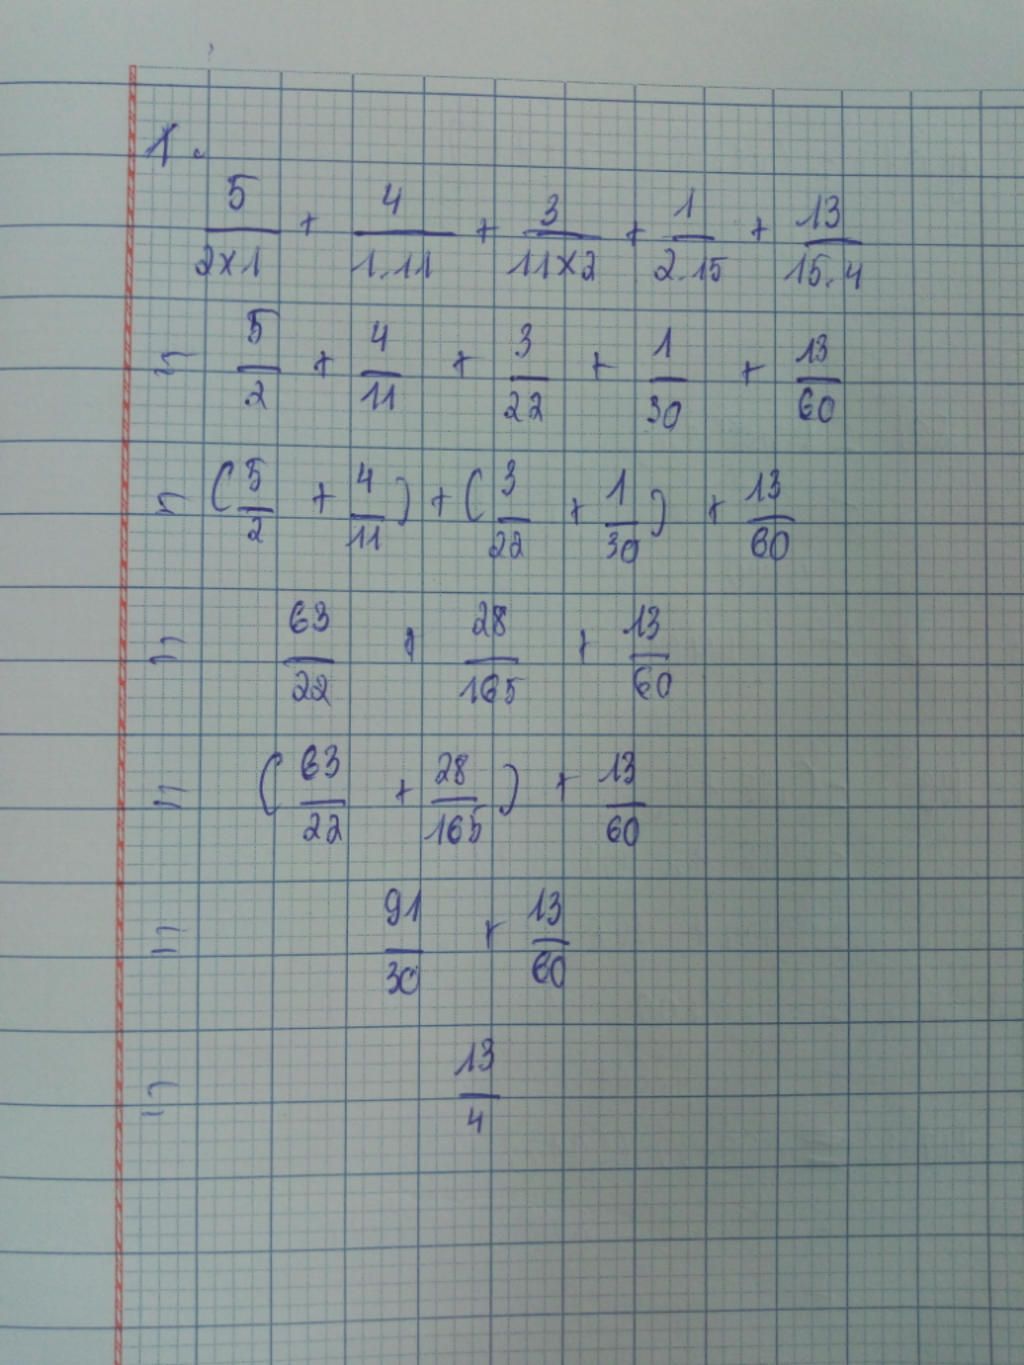 1.
5/2×1 + 4/1.11 + 3/11×2 + 1/2.15 + 13/15.4
= 5/2 + 4/11 + 3/22 + 1/30 + 13/60
= (5/2 + 4/11) + (3/22 + 1/30) + 13/60
= 63/22 + 28/165 + 13/60
= (63/22 + 28/165) + 13/60
= 91/30 + 13/60
= 13/4